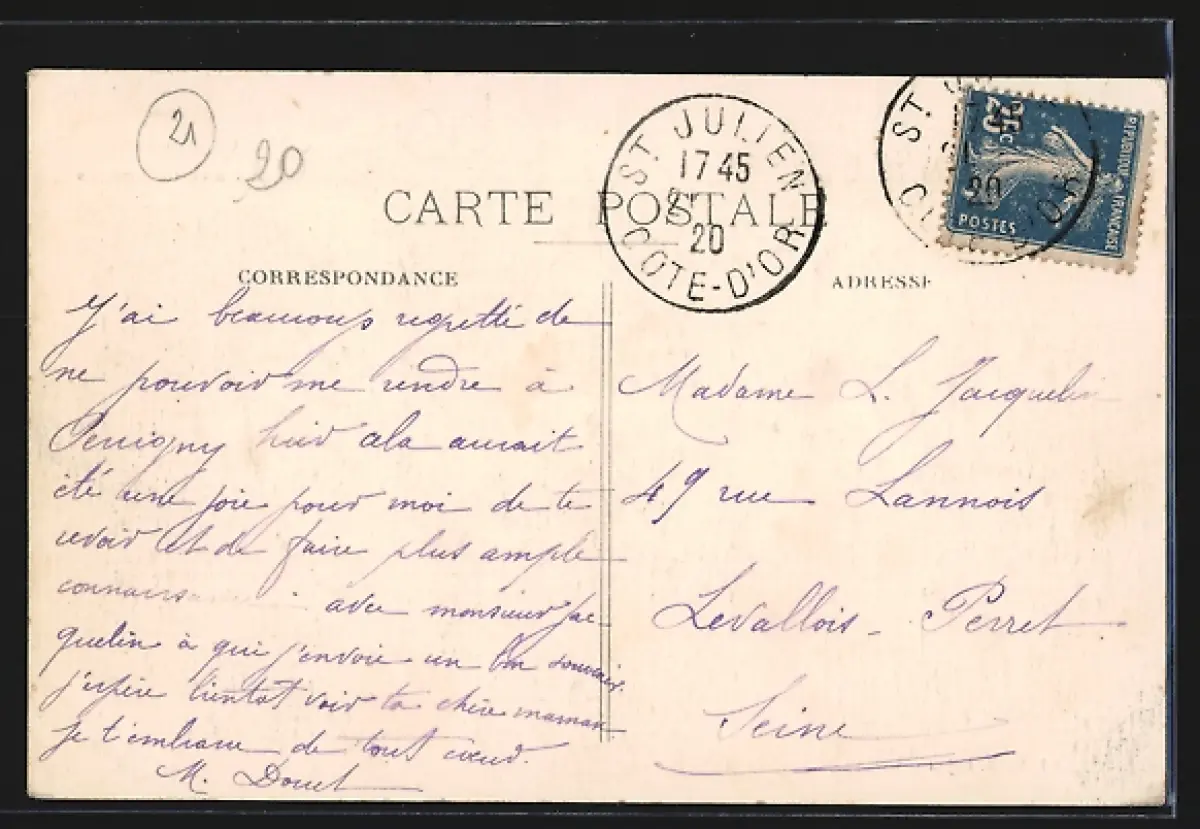 21
20
CARTE POSTALE
ST JULIEN
17 45
20
COTE-D'OR
ST
20
D'OR
25c
POSTES
REPUBLIQUE FRANÇAISE
CORRESPONDANCE
J'ai beaucoup regretté de
ne pouvoir me rendre à
hier cela aurait
été une joie pour moi de te
revoir et de faire plus ample
connaiss avec monsieur Jac
quelin à qui j'envoie un bon souvenir.
j'espère bientot voir ta chère maman
je t'embrasse de tout cœur.
M. Douet
ADRESSE
Madame L. Jacquelin
49 rue Lannois
Levallois - Perret
Seine